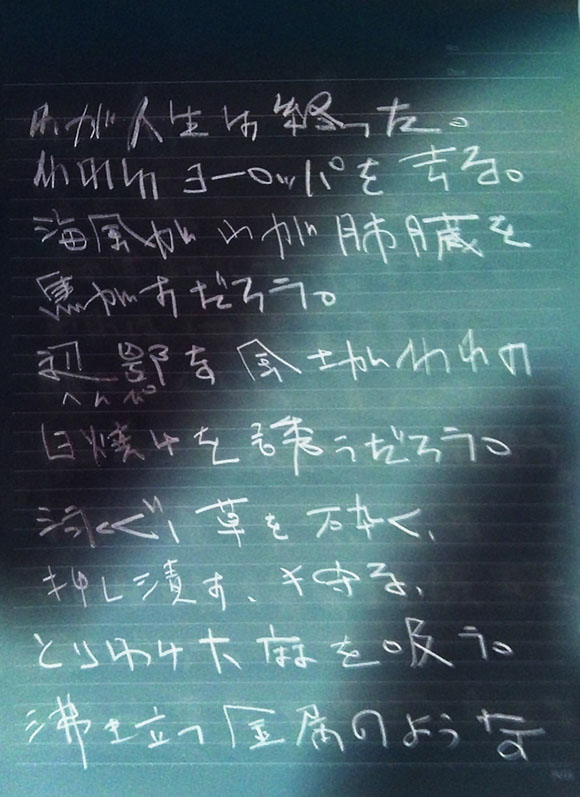 No.
Date
わが人生は終った。
われは ヨーロッパを 去る。
海風がわが 肺臓を
焦がすだろう。
辺鄙な風土がわれの
へんぴ
日焼けを誘うだろう。
泳ぐ、草を砕く、
押し潰す、狩る、
とりわけ大麻を吸う。
沸き立つ金属のような